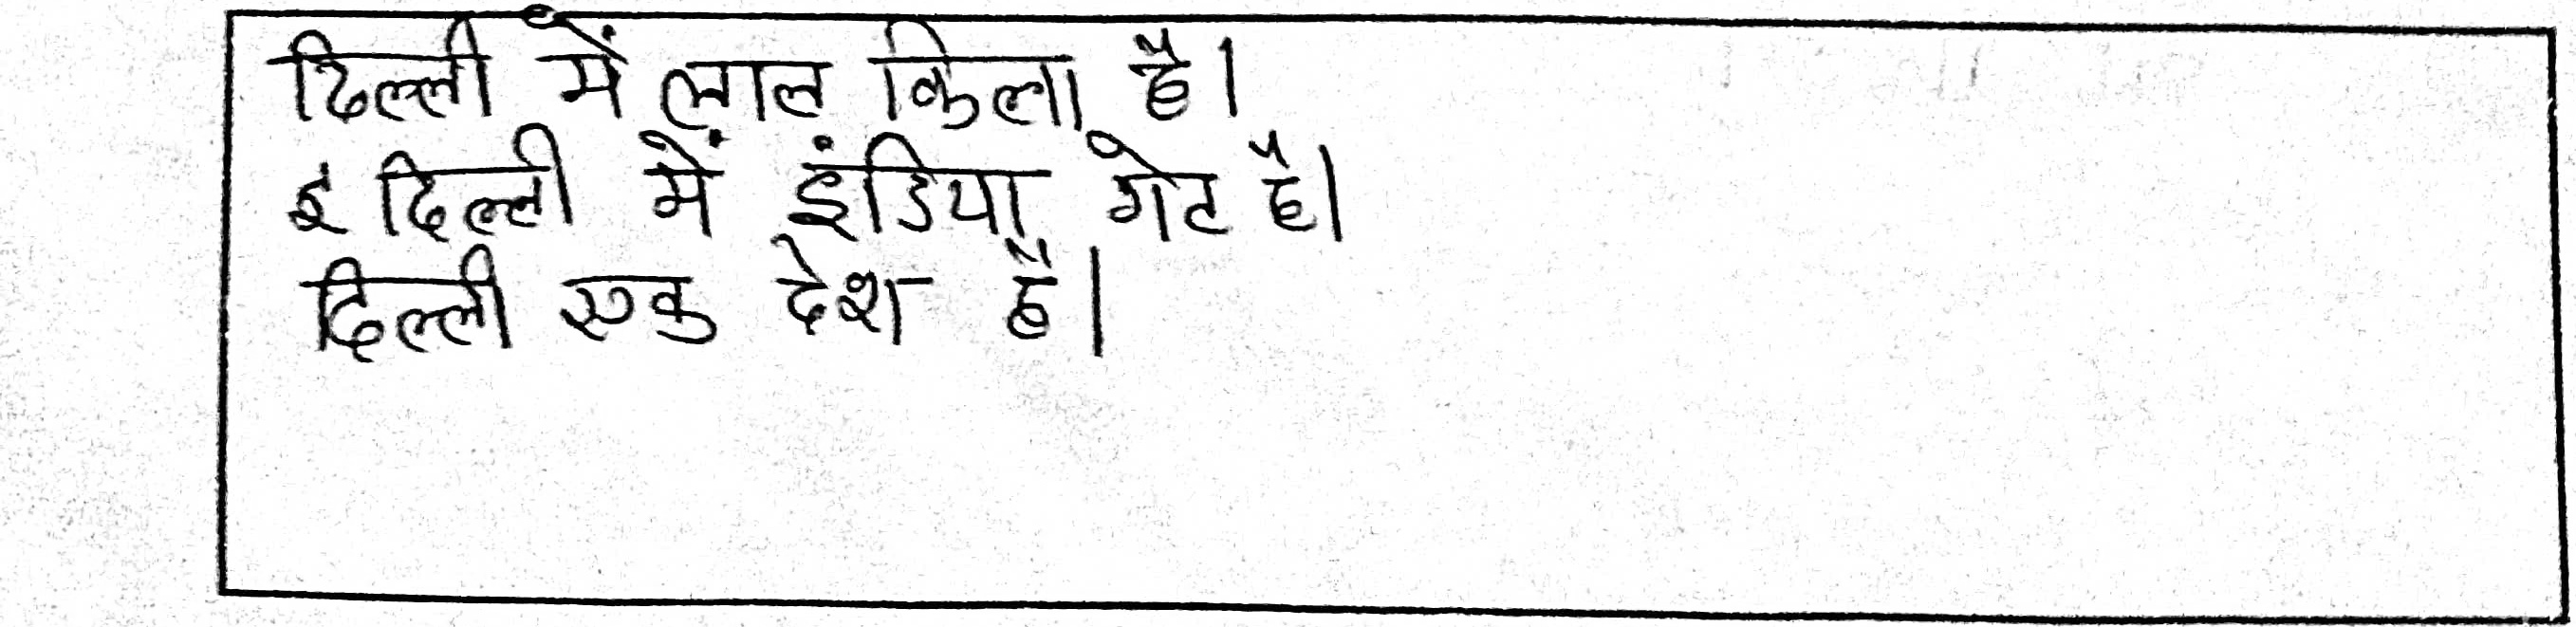 दिल्ली में लाल किला है।
इ दिल्ली में इंडिया गेट है।
दिल्ली एक देश है।